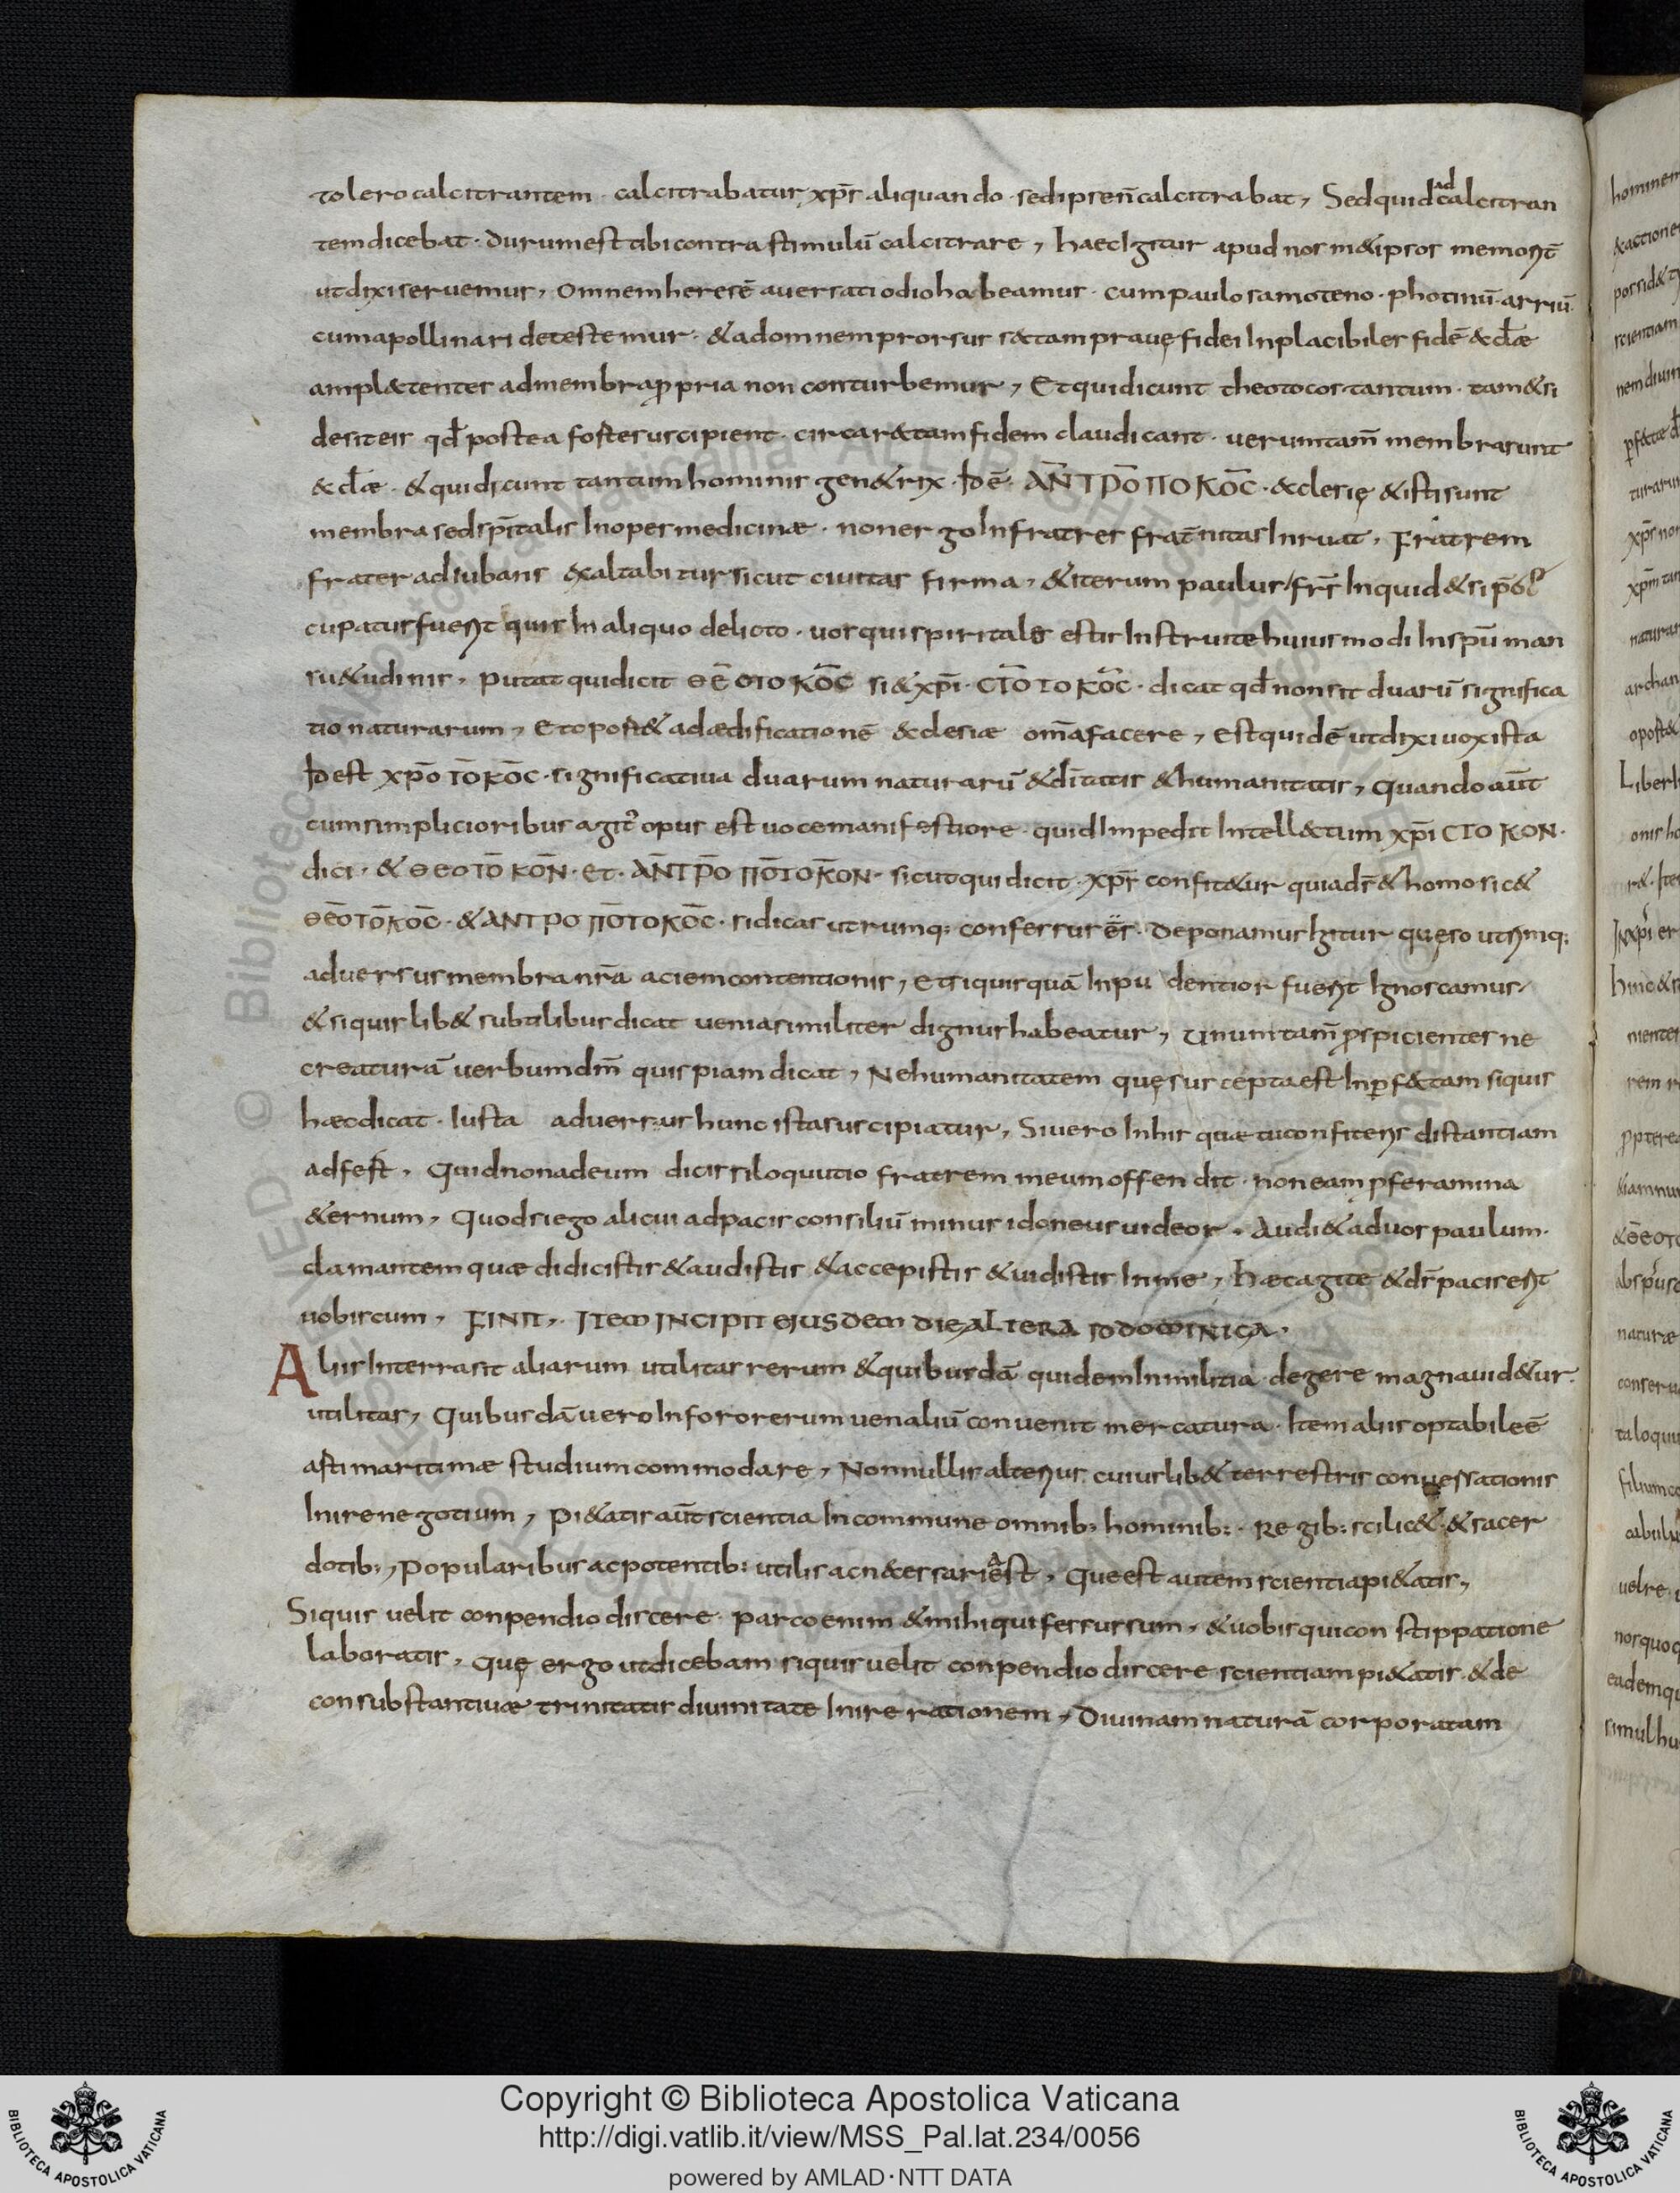 tolero calcitrantem · calcitrabatur xp̄s aliquando · sed ipse n̄ calcitrabat, Sed quid ad calcitran
tem dicebat · durum est tibi contra stimulū calcitrare, haec Igitur apud nos m&ipsos
ut dixi seruemus, omnem heresē auersati odio habeamus · cum paulo samoteno · photinū · arriū ·
cum apollinari detestemur · & ad omnem prorsus sectam prauę fidei Inplacibiles fidē
ampl&tentes ad membra ꝓpria non conturbemur, Et qui dicunt theotocos tantum · tam&si
desit eis qd̄ postea suscipient · circa r&tam fidem claudicant · uerumtam̄ membra sunt
& qui dicunt tantum hominis gen&rix · Id ē · ΑN̄ΤΡŌΠΟΚŌC · &clesię & isti sunt
membra sed sp̄italis Inopes medicinæ · non ergo In fratres frat̄nitas Inruat, Fratrem
frater adiubans exaltabitur sicut ciuitas firma, & iterum paulus / fr̄s Inquid & si p̄oc
cupatus fuerit quis In aliquo delicto · uos qui spiritales estis Instruite huiusmodi In sp̄u man
su&udinis, putat qui dicit ΘĒΟΤΟΚŌC si & xp̄i · CTŌΤΟΚŌC · dicat qd̄ non sit duarū significa
tio naturarum, Et opost& ad ædificationē &clesiæ om̄a facere, est quidē ut dixi uox ista
Id est xp̄o ΤŌΚŌC · significatiua duarum naturarū & dītatis & humanitatis, Quando aūt
cum simplicioribus agit᷑ opus est uoce manifestiore · quid Impedit Intell&tum xp̄i CΤΟΚΟΝ ·
dici · & ΘΕΟΤŌΚŌΝ · et · ΑN̄ΤΡ̄Ο ΠŌΤΟΚŌΝ · sicut qui dicit · xp̄s confit&ur quia d̄s & homo sic &
ΘĒΟΤŌΚŌC · & ΑΝΤΡΟΠŌΤΟΚŌC · si dicas utrumq; confessus ēs · deponamus Igitur quęso
aduersus membra nr̄a aciem contentionis, Et si quisquā Inpudentior fuerit Ignoscamus,
& si quis lib& subtilibus dicat uenia similiter dignus habeatur, unum tam̄ ꝓspicientes ne
creaturā uerbum dm̄ quispiam dicat, Ne humanitatem quę suscepta est Inꝑf&tam si quis
hæc dicat · Iusta aduersus hunc ista suscipiatur, Si uero In his quæ tu confiteris distantiam
adfest, Quid non ad eum dicis si loquutio fratrem meum offendit · non eam ꝓferam In a
&ernum, Quod si ego alicui ad pacis consiliū minus idoneus uideor, Audi & ad uos paulum ·
clamantem quæ didicistis & audistis & accepistis & uidistis In me, hæc agite & d̄s pacis erit
uobiscum, FINIT, ITEM INCIPIT EIUSDEM DIE ALTERA DOMINICA,
Aliis Interrasit aliarum utilitas rerum & quibusdā quidem In militia degere magna uid&ur ·
utilitas, Quibusdā uero In foro rerum uenaliū conuenit mercatura · Item aliis optabile ē
asti maritimæ studium commodare, Nonnullis alterius cuiuslib& terrestris conuersationis
Inire negotium, Pi&atis aūt scientia In commune omnib; hominib; · Regib; scilic& · & sacer
dotib;, Popularibus ac potentib; utilis ac n&essaria est, Que est autem scientia pi&atis,
Si quis uelit conpendio discere · parco enim & mihi qui fessus sum, & uobis qui constippatione
laboratis, Quę ergo ut dicebam si quis uelit conpendio discere scientiam pi&atis · & de
consubstantiuæ trinitatis diuinitate Inire rationem, Diuinam naturā corporatam
© Biblioteca Apostolica Vaticana · ALL RIGHTS RESERVED
Copyright © Biblioteca Apostolica Vaticana
http://digi.vatlib.it/view/MSS_Pal.lat.234/0056
powered by AMLAD·NTT DATA
BIBLIOTECA APOSTOLICA VATICANA
BIBLIOTECA APOSTOLICA VATICANA